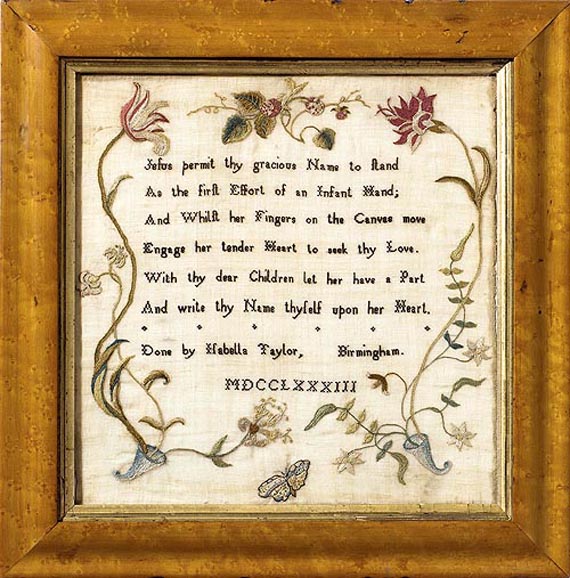 Jeſus permit thy gracious Name to ſtand
As the firſt Effort of an Infant Hand;
And Whilſt her Fingers on the Canvas move
Engage her tender Heart to seek thy Love.
With thy dear Children let her have a Part
And write thy Name thyſelf upon her Heart.
Done by Iſabella Taylor, Birmingham.
MDCCLXXXIII